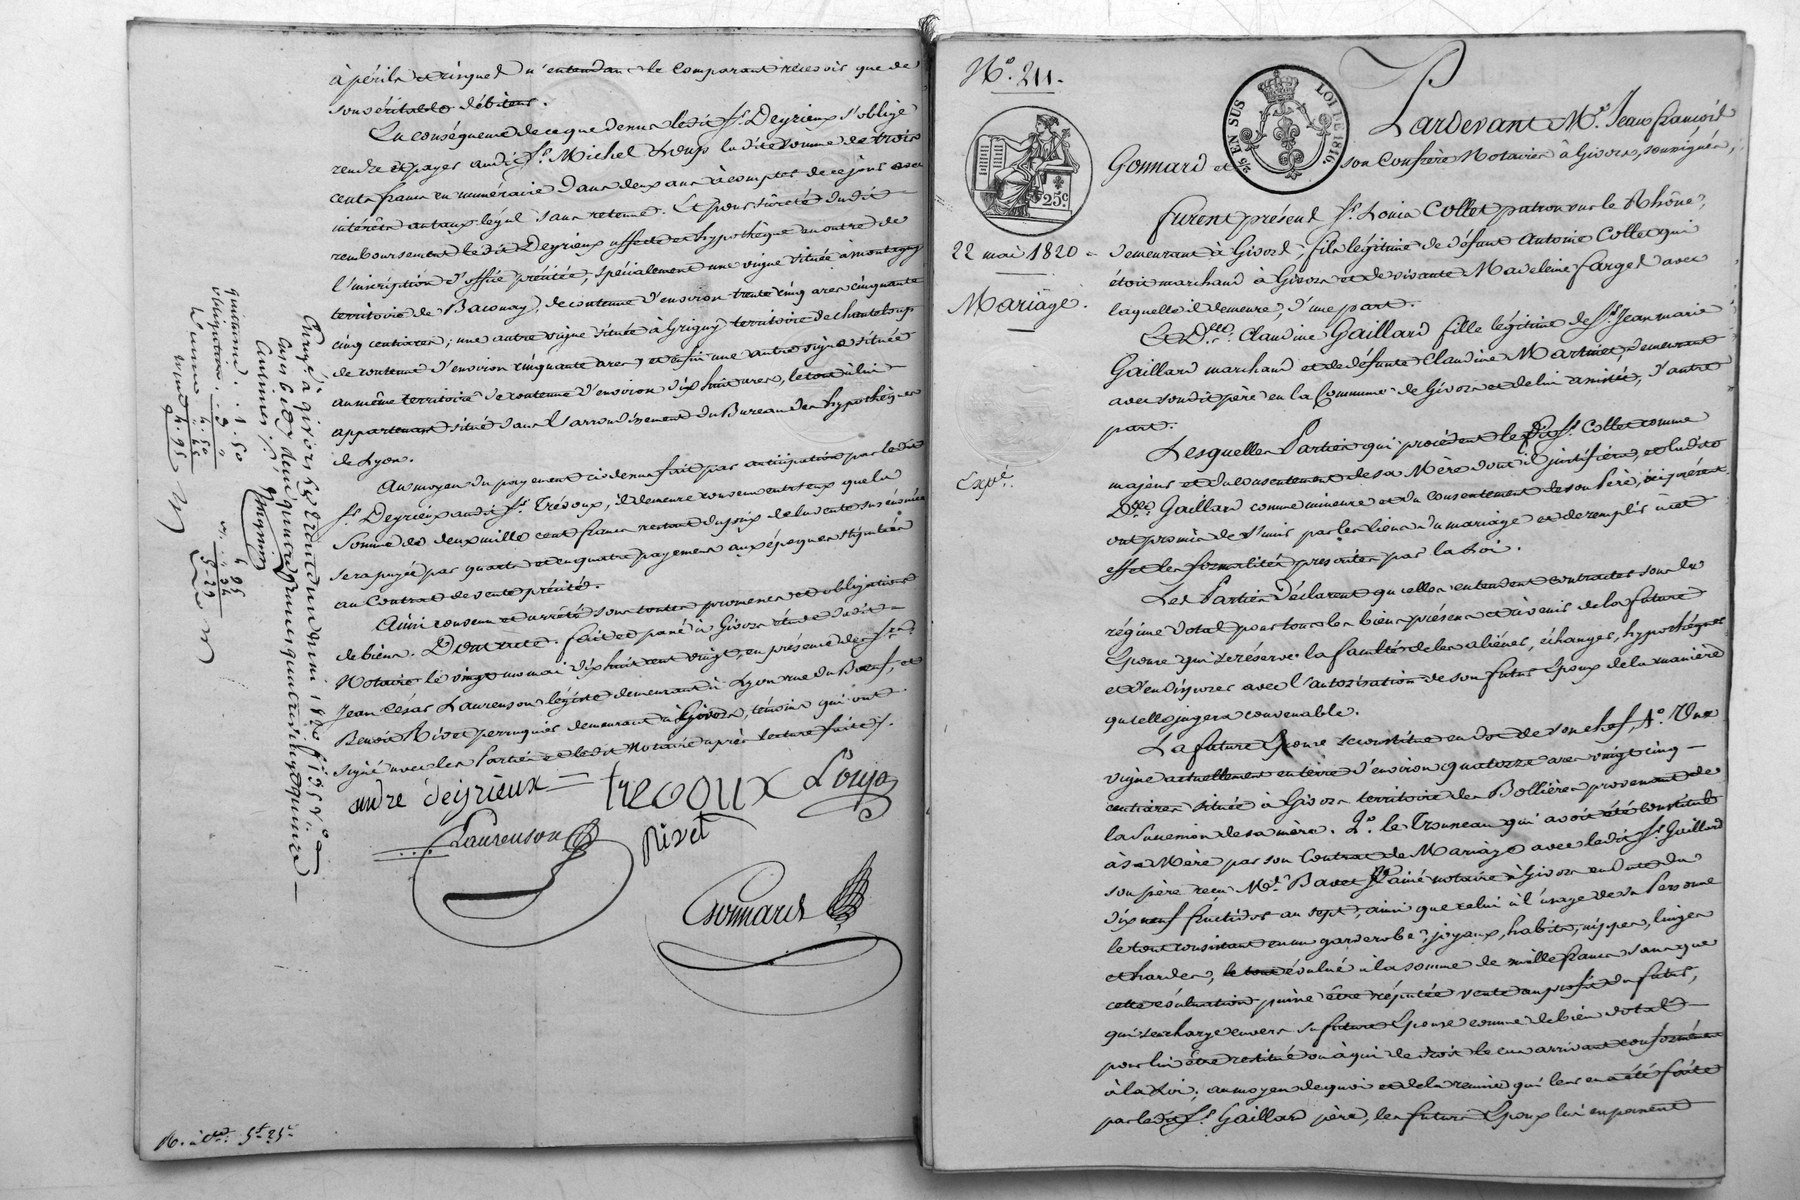 à périls et risques n'entendant le comparant recevoir que de
son véritable débiteur.
En conséquence de ce que dessus ledit Sr. Deyrieux s'oblige
rendre et payer audit Sr. Michel Loup la dite somme de trois
cents francs en numéraire dans deux ans à compter de ce jour avec
intérêts au taux légal sans retenue. Et pour sûreté dudit
remboursement ledit Deyrieux affecte et hypothèque en outre de
l'inscription d'office précitée, spécialement une vigne située à montagny
territoire de Baconay, de contenue d'environ trente cinq ares cinquante
cinq centiares; une autre vigne située à Grigny territoire de chanteloup
de contenue d'environ cinquante ares, et enfin une autre vigne située
au même territoire de contenue d'environ dix huit ares, le tout à lui
appartenant situé dans l'arrondissement du Bureau des hypothèques
de Lyon.
Au moyen du payement ci dessus fait par anticipation par ledit
Sr. Deyrieux audit Sr. Trévoux, il demeure convenu entr'eux que la
somme de deux mille cent francs restant du prix de la vente sus énoncée
sera payée par quarts et en quatre payements aux époques stipulées
au Contrat de vente précité.
Ainsi convenu et arrêté sous toutes promesses et obligations
de biens. Dont acte. fait et passé à Givors étude dudit
Notaire le vingt un mai dix huit cent vingt, en présence des Srs.
Jean César Laurenson légiste demeurant à Lyon rue du Boeuf, et
Benoit Rivet perruquier demeurant à Givors, témoins qui ont
signé avec les Parties et ledit Notaire après lecture faite.
andré deyrieux = trevoux Loup
Laurenson Rivet
Gonnard
quittance . 1. 50
obligation . 3 "
4. 50
" 45
4. 95
4 95
" 34
5-29
R. à Ctd. 5f-25c
No. 211.
25c.
2/6 EN SUS LOI DE 1816
22 mai 1820 =
Mariage.
Expée.
Pardevant Me. Jean françois
Gonnard et son Confrère Notaires à Givors, soussignés,
furent présens Sr. Louis Collet patron sur le Rhône,
demeurant à Givors, fils légitime de défunt Antoine Collet qui
étoit marchand à Givors et de vivante Madeleine farget avec
laquelle il demeure, d'une part.
Et Dlle. Claudine Gaillard fille légitime de Sr. Jean marie
Gaillard marchand et de défunte Claudine Martinet, demeurant
avec son dit père en la Commune de Givors et de lui assistée, d'autre
part.
Lesquelles Parties qui procèdent ledit Sr. Collet comme
majeur et du consentement de sa Mère dont il justifiera, et ladite
Dlle. Gaillard comme mineure et du consentement de son Père, ici présent
ont promis de s'unir par les liens du mariage et de remplir à cet
effet les formalités prescrites par la Loi.
Les Parties déclarent qu'elles entendent contracter sous le
régime dotal pour tous les biens présens et à venir de la future
Epouse qui se réserve la faculté de les aliéner, échanger, hypothéquer
et d'en disposer avec l'autorisation de son futur Epoux de la manière
qu'elle jugera convenable.
La future Epouse se constitue en dot de son chef, 1o. Une
vigne actuellement en terre d'environ quatorze ares vingt cinq
centiares située à Givors territoire des Bollières provenant de
la succession de sa mère. 2o. le Trousseau qui avoit été constitué
à sa Mère par son Contrat de Mariage avec ledit Sr. Gaillard
son père reçu Me. Bavet l'ainé notaire à Givors en date du
dix neuf fructidor an sept, ainsi que celui à l'usage de sa Personne
le tout consistant en un garderobe, joyaux, habits, nippes, linges
et hardes, le tout évalué à la somme de mille francs sans que
cette évaluation puisse être réputée vente au profit du futur,
qui s'en charge envers sa future Epouse comme de bien dotal
pour lui être restitué ou à qui de droit le cas arrivant conformément
à la Loi, au moyen de quoi et de la remise qui leur en a été faite
par ledit Sr. Gaillard père, les futurs Epoux lui en passent